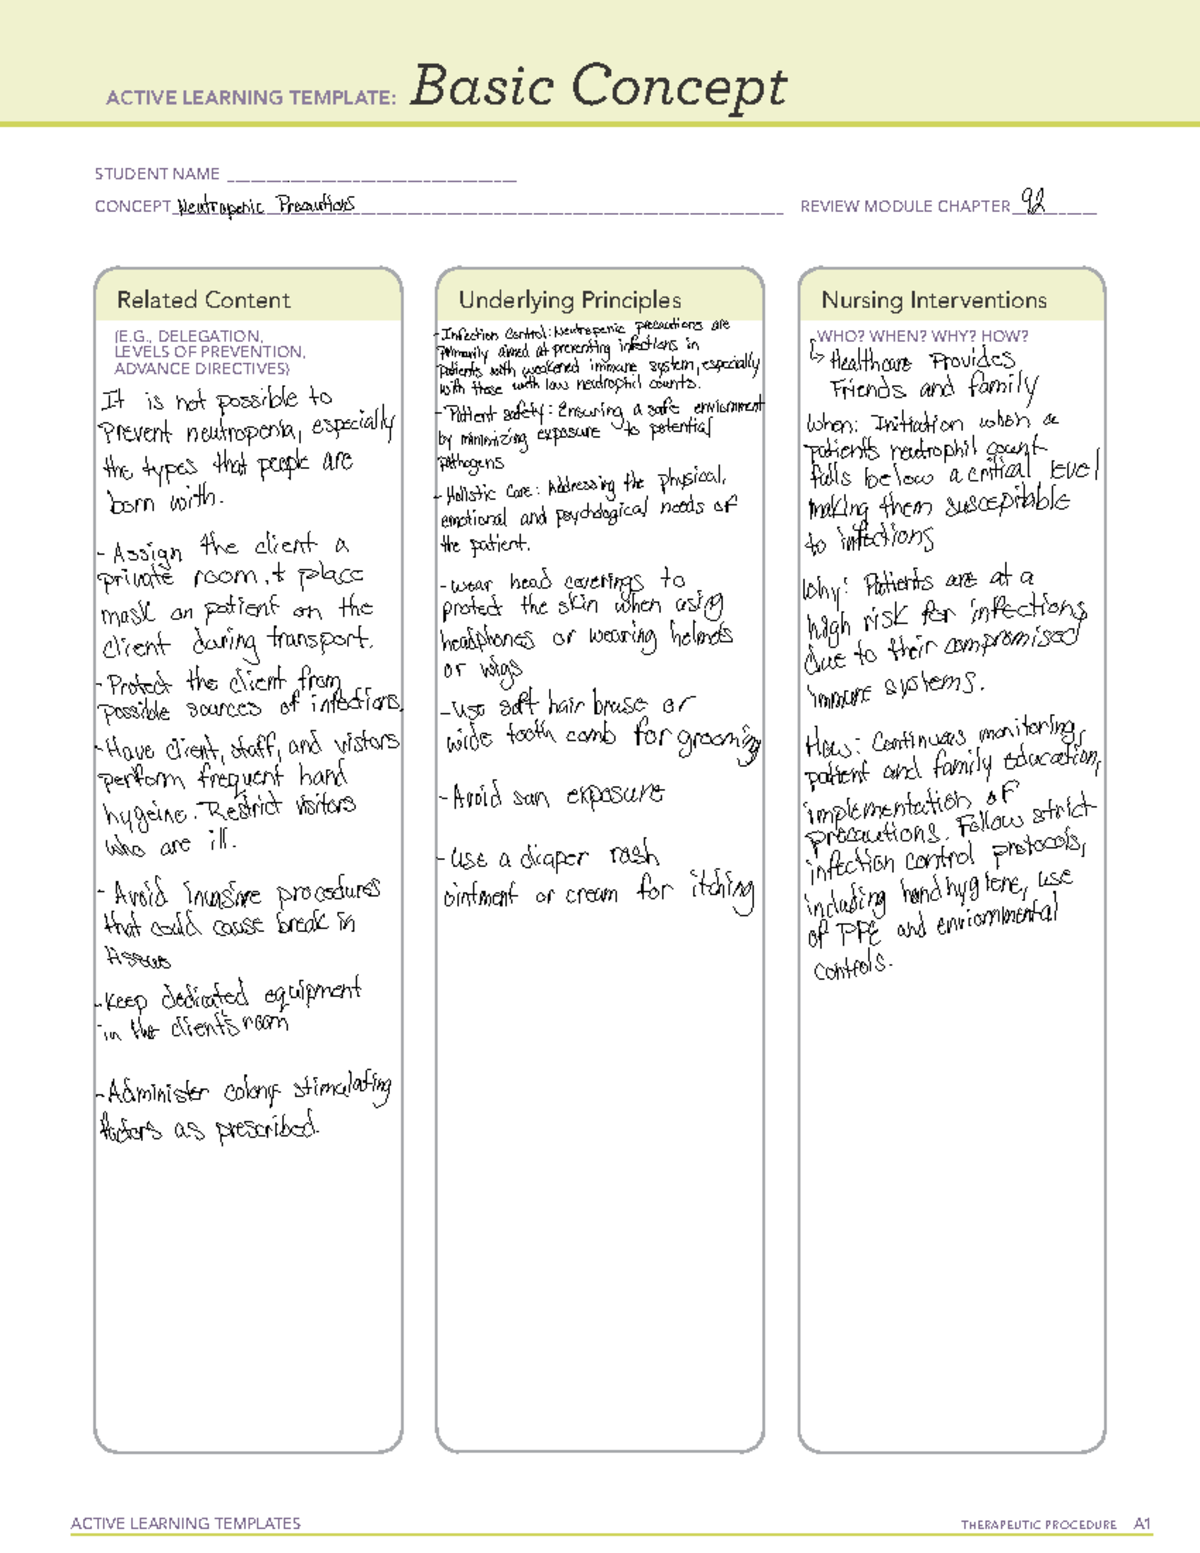 ACTIVE LEARNING TEMPLATE: Basic Concept
STUDENT NAME
CONCEPT Neutropenic Precautions
REVIEW MODULE CHAPTER 92
Related Content
(E.G., DELEGATION,
LEVELS OF PREVENTION,
ADVANCE DIRECTIVES)
It is not possible to
Prevent neutropenia, especially
the types that people are
born with.
- Assign the client a
private room, + place
mask on patient on the
client during transport.
- Protect the client from
possible sources of infections.
- Have client, staff, and vistors
perform frequent hand
hygeine. Restrict visitors
who are ill.
- Avoid invasive procedures
that could cause break in
tissues
- Keep dedicated equipment
in the client's room
- Administer colony stimulating
factors as prescribed.
Underlying Principles
- Infection Control: Neutropenic precautions are
primarily aimed at preventing infections in
patients with weakened immune system, especially
with those with low neutrophil counts.
- Patient safety: Ensuring a safe enviornment
by minimizing exposure to potential
pathogens
- Holistic Care: Addressing the physical,
emotional and psychological needs of
the patient.
- wear head coverings to
protect the skin when using
headphones or wearing helmets
or wigs
- Use soft hair bruse or
wide tooth comb for grooming
- Avoid sun exposure
- Use a diaper rash
ointment or cream for itching
Nursing Interventions
WHO? WHEN? WHY? HOW?
↳ Healthcare Provides
Friends and family
When: Initiation when a
patients neutrophil count
falls below a critical level
making them susceptible
to infections
Why: Patients are at a
high risk for infections
due to their compromised
immune systems.
How: Continuous monitoring,
patient and family education,
implementation of
precautions. Follow strict
infection control protocols,
including hand hygiene, use
of PPE and enviornmental
controls.
ACTIVE LEARNING TEMPLATES
THERAPEUTIC PROCEDURE A1